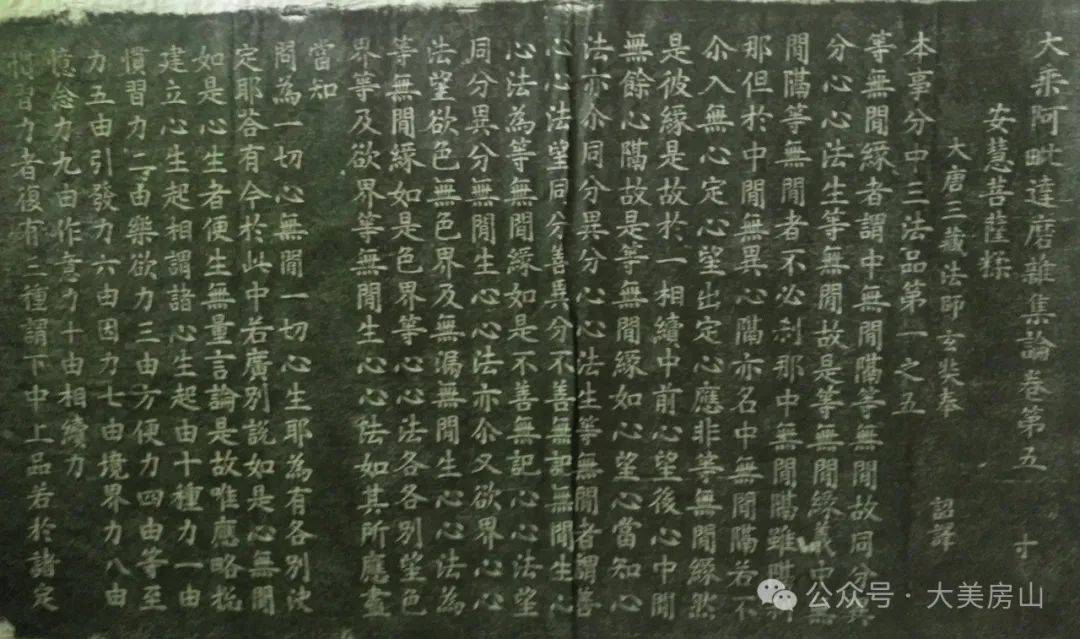 大乘阿毗達磨雜集論卷第五 寸
安慧菩薩糅
大唐三藏法師玄奘奉 詔譯
本事分中三法品第一之五
等無閒緣者謂中無閒隔等無閒故同分異
分心心法生等無閒故是等無閒緣義中無
閒隔等無閒者不必剎那中無閒隔雖
那但於中閒無異心隔亦名中無閒隔若不
尒入無心定心望出定心應非等無閒緣然
是彼緣是故於一相續中前心望後心中閒
無餘心隔故是等無閒緣如心望心當知心
法亦尒同分異分心心法生等無閒者謂善
心心法望同分善異分不善無記無閒生心
心法為等無閒緣如是不善無記心心法望
同分異分無閒生心心法亦尒又欲界心心
法望欲色無色界及無漏無閒生心心法為
等無閒緣如是色界等心心法各各別望色
界等及欲界等無閒生心心法如其所應盡
當知
問為一切心無閒一切心生耶為有各別決
定耶荅有今於此中若廣別說如是心無閒
如是心生者便生無量言論是故唯應略
建立心生起相謂諸心生起由十種力一由
慣習力二由樂欲力三由方便力四由等至
力五由引發力六由因力七由境界力八由
憶念力九由作意力十由相續力
習力者復有三種謂下中上品若於諸定
公众号 · 大美房山